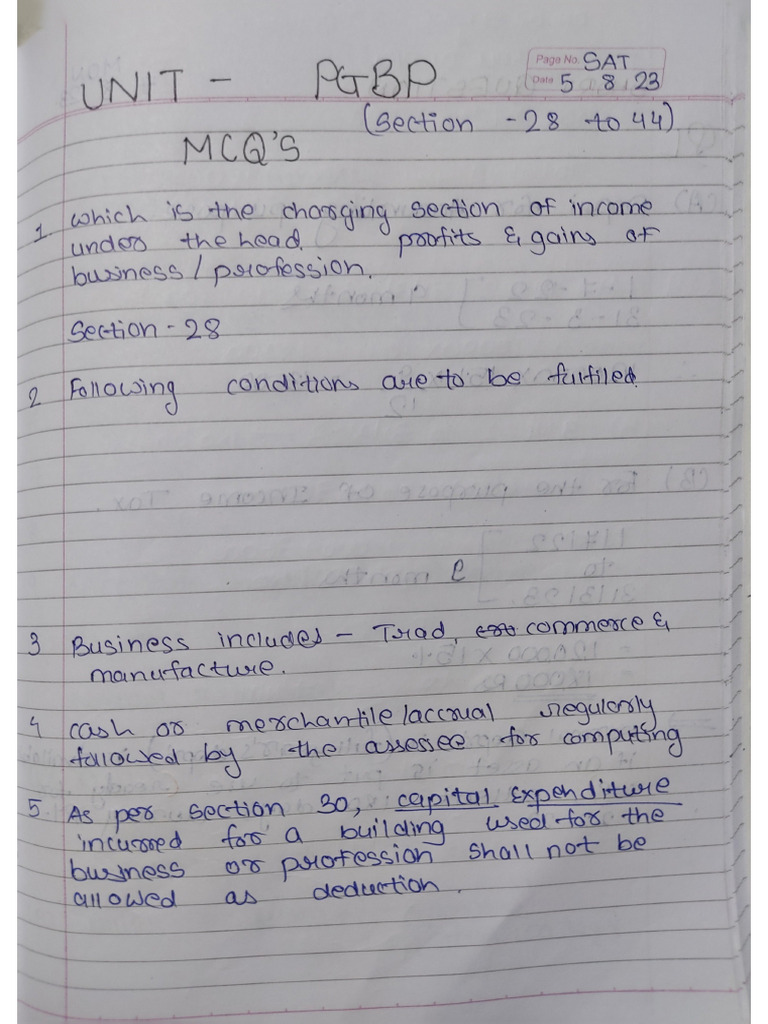 Page No. SAT
Date 5 8 23
UNIT - PGBP
(Section - 28 to 44)
MCQ'S
1 which is the charging section of income
under the head profits & gains of
business / profession.
Section - 28
2 Following conditions are to be fulfiled
3 Business includes - Trad, commerce &
manufacture.
4 cash or merchantile/accrual regularly
followed by the assesee for computing
5 As per section 30, capital Expenditure
incurred for a building used for the
business or profession shall not be
allowed as deduction.